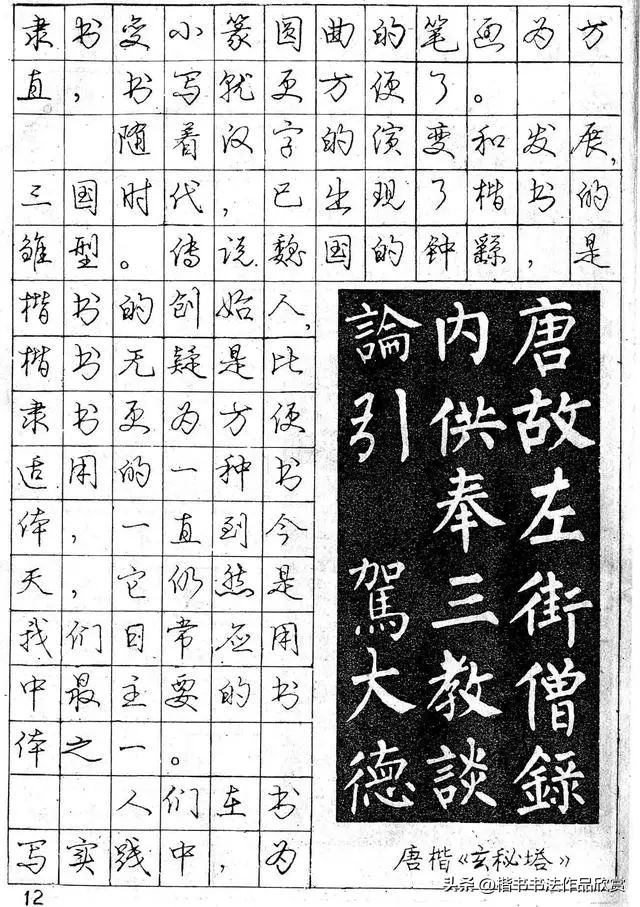 隶书变小篆圆曲的笔画为方
直，书写就更方便了。
随着汉字的演变和发展，
三国时代，已出现了楷书的
雏型。传说魏国的钟繇，是
楷书的创始人，
楷书无疑是比
隶书更为方便
适用的一种书
体，一直到今
天，它仍然是
我们日常应用
中最主要的书
体之一。
人们在书
写实践中，为
唐故左街僧錄
内供奉三教談
論引 駕大德
唐楷《玄秘塔》
12
头条@楷书书法作品欣赏